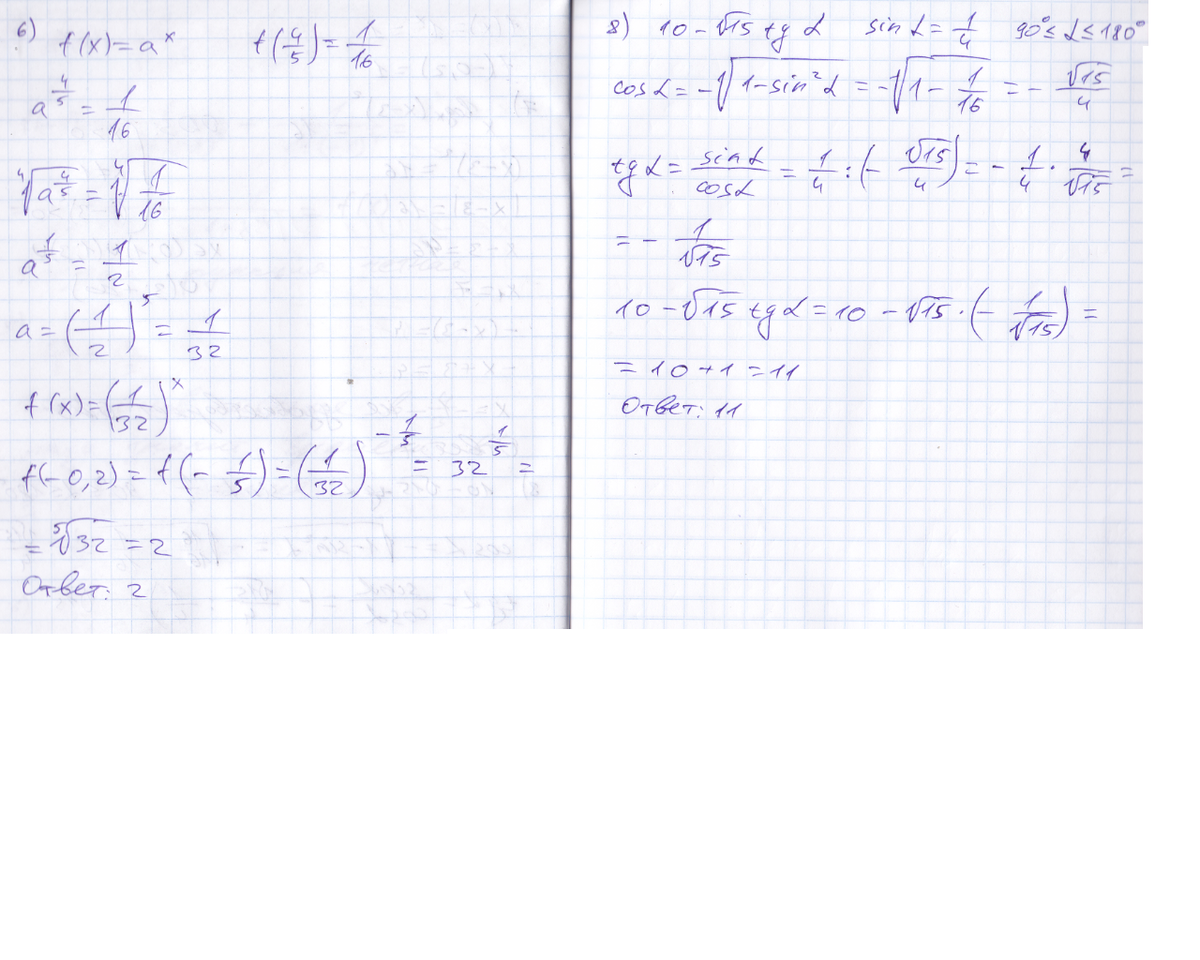 6) f(x)=aˣ f(4/5)=1/16
a^(4/5) = 1/16
⁴√(a^(4/5)) = ⁴√(1/16)
a^(1/5) = 1/2
a = (1/2)^5 = 1/32
f(x)=(1/32)^x
f(-0,2) = f(-1/5) = (1/32)^(-1/5) = 32^(1/5) =
= ⁵√32 = 2
Ответ: 2
8) 10 - √15 tg α sin α = 1/4 90° ≤ α ≤ 180°
cos α = -√(1-sin²α) = -√(1 - 1/16) = - √15/4
tg α = sin α/cos α = 1/4 : (- √15/4) = - 1/4 · 4/√15 =
= - 1/√15
10 - √15 tg α = 10 - √15 · (- 1/√15) =
= 10 + 1 = 11
Ответ: 11